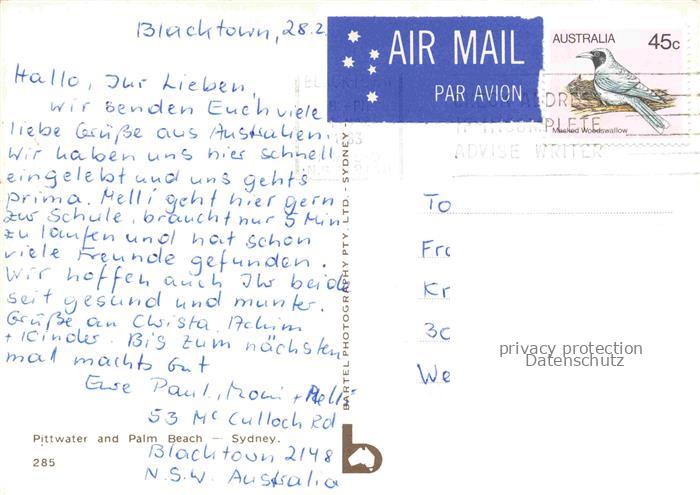 Blacktown, 28.2.
Hallo, Ihr Lieben,
wir senden Euch viele
liebe Grüße aus Australien.
Wir haben uns hier schnell
eingelebt und uns gehts
prima. Melli geht hier gern
zur Schule, braucht nur 5 Min
zu laufen und hat schon
viele Freunde gefunden.
Wir hoffen auch Ihr beide
seit gesund und munter.
Grüße an Christa, Achim
+ Kinder. Bis zum nächsten
mal machts gut
Eure Paul, Moni + Melli
53 Mc Culloch Rd
Blacktown 2148
N.S.W. Australia
Pittwater and Palm Beach — Sydney.
285
BARTEL PHOTOGRAPHY PTY. LTD. - SYDNEY -
b
AIR MAIL
PAR AVION
AUSTRALIA 45c
Masked Woodswallow
IF INCOMPLETE
ADVISE WRITER
To
Fr
Kr
3
We
privacy protection
Datenschutz